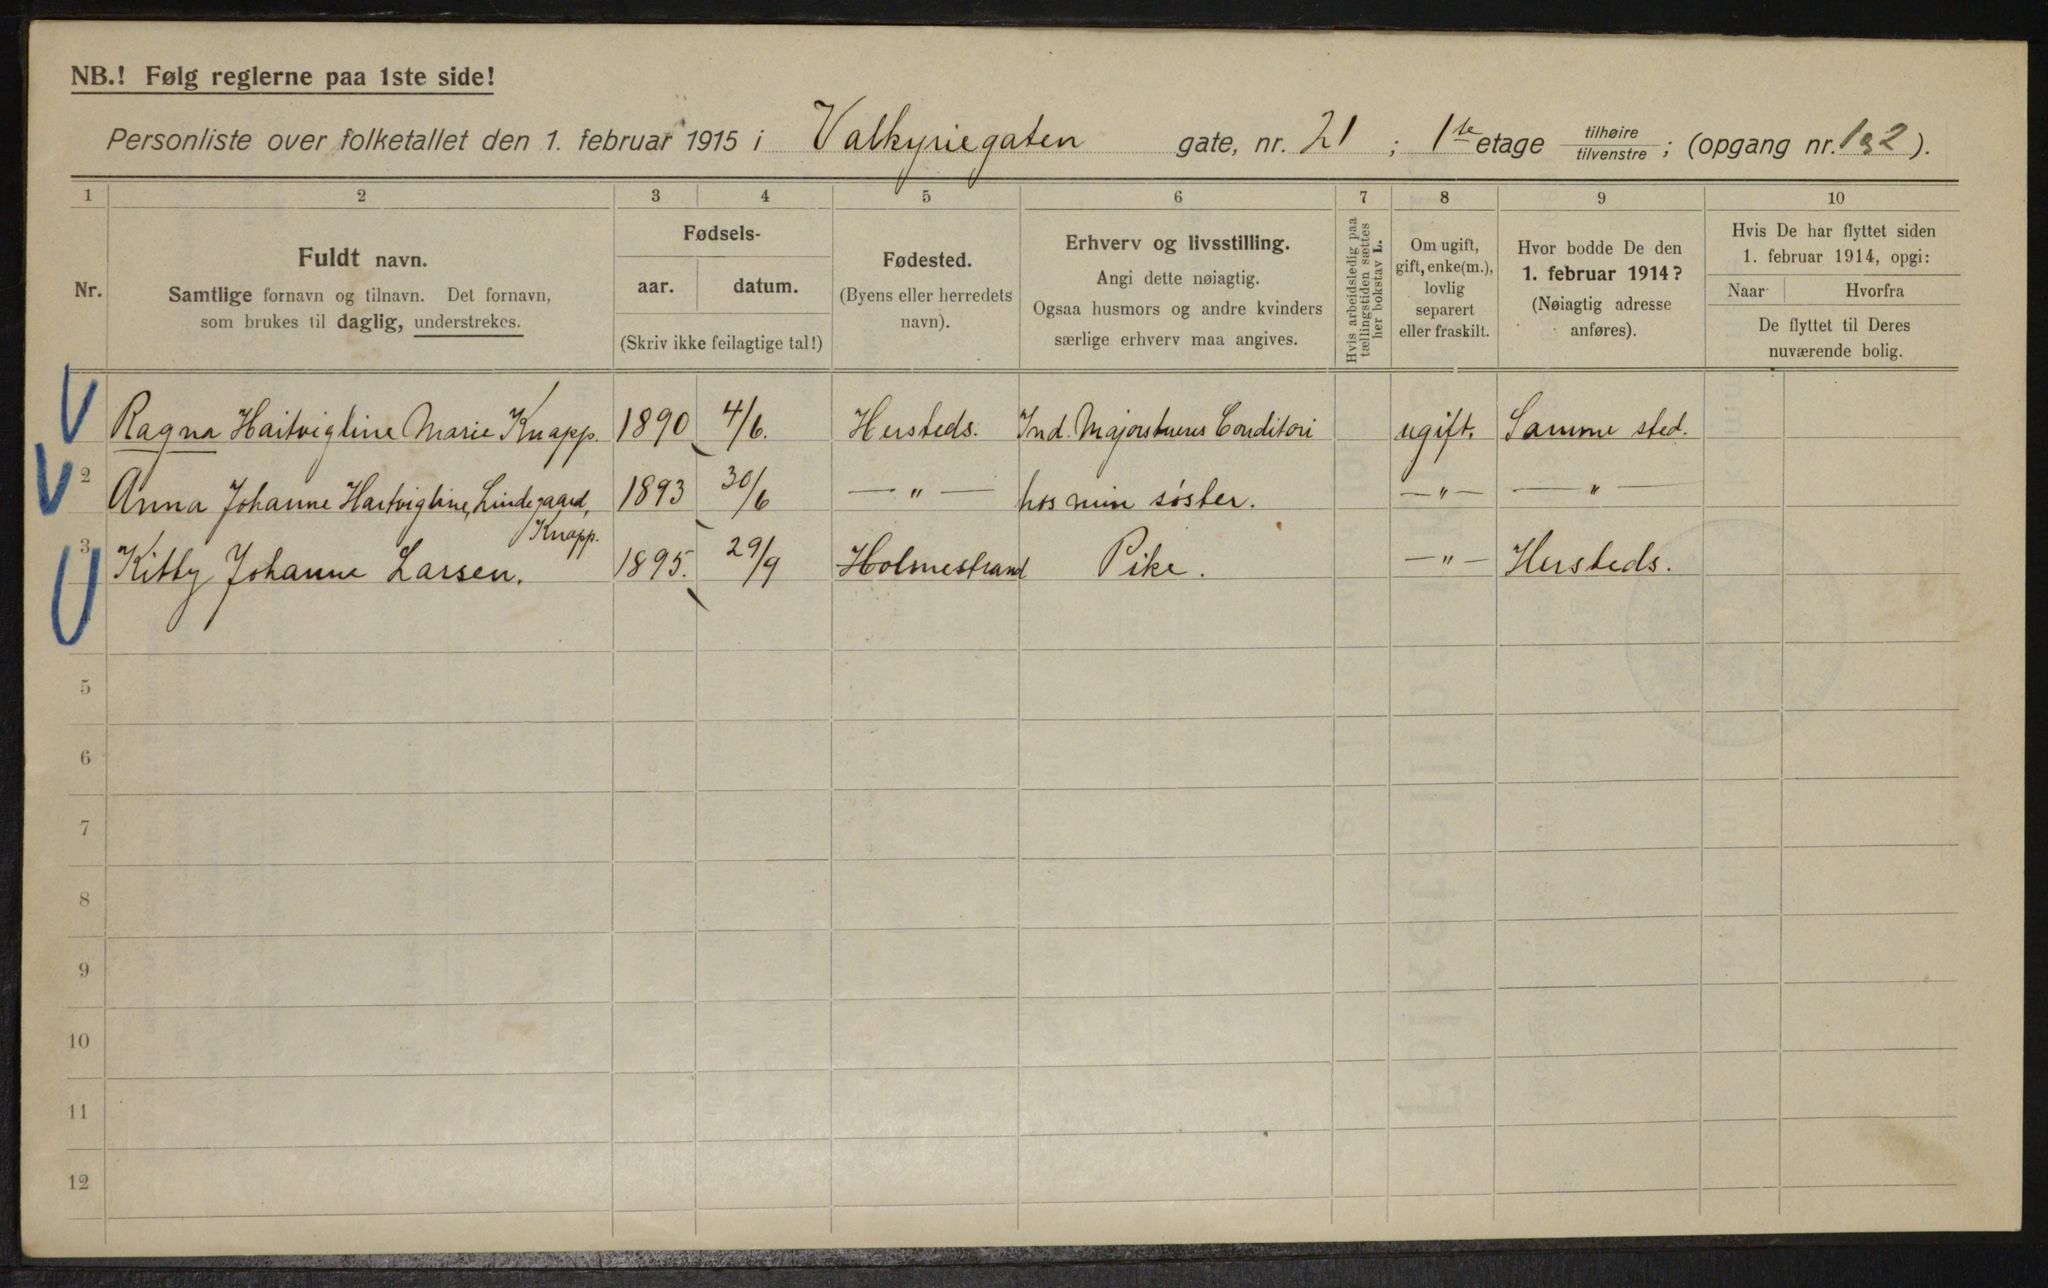 NB.! Følg reglerne paa 1ste side!
Personliste over folketallet den 1. februar 1915 i Valkyriegaten gate, nr. 21 ; 1ste etage tilhøire / tilvenstre ; (opgang nr. 1 2 ).
1 2 3 4 5 6 7 8 9 10
Nr.
Fuldt navn.
Samtlige fornavn og tilnavn. Det fornavn,
som brukes til daglig, understrekes.
Fødsels-
aar. datum.
(Skriv ikke feilagtige tal!)
Fødested.
(Byens eller herredets
navn).
Erhverv og livsstilling.
Angi dette nøiagtig.
Ogsaa husmors og andre kvinders
særlige erhverv maa angives.
Hvis arbeidsledig paa
tællingstiden sættes
her bokstav L.
Om ugift,
gift, enke(m.),
lovlig
separert
eller fraskilt.
Hvor bodde De den
1. februar 1914?
(Nøiagtig adresse
anføres).
Hvis De har flyttet siden
1. februar 1914, opgi:
Naar Hvorfra
De flyttet til Deres
nuværende bolig.
Ragna Hartvigline Marie Knapp. 1890 4/6. Hersteds. Ind. Majorstuens Conditori ugift. Samme sted.
2 Anna Johanne Hartvigline, Lindegaard, 1893 30/6 — " — hos min søster. — " — — " —
Knapp.
3 Kitty Johanne Larsen. 1895. 29/9 Holmestrand Pike. — " — Hersteds.
5
6
7
8
9
10
11
12